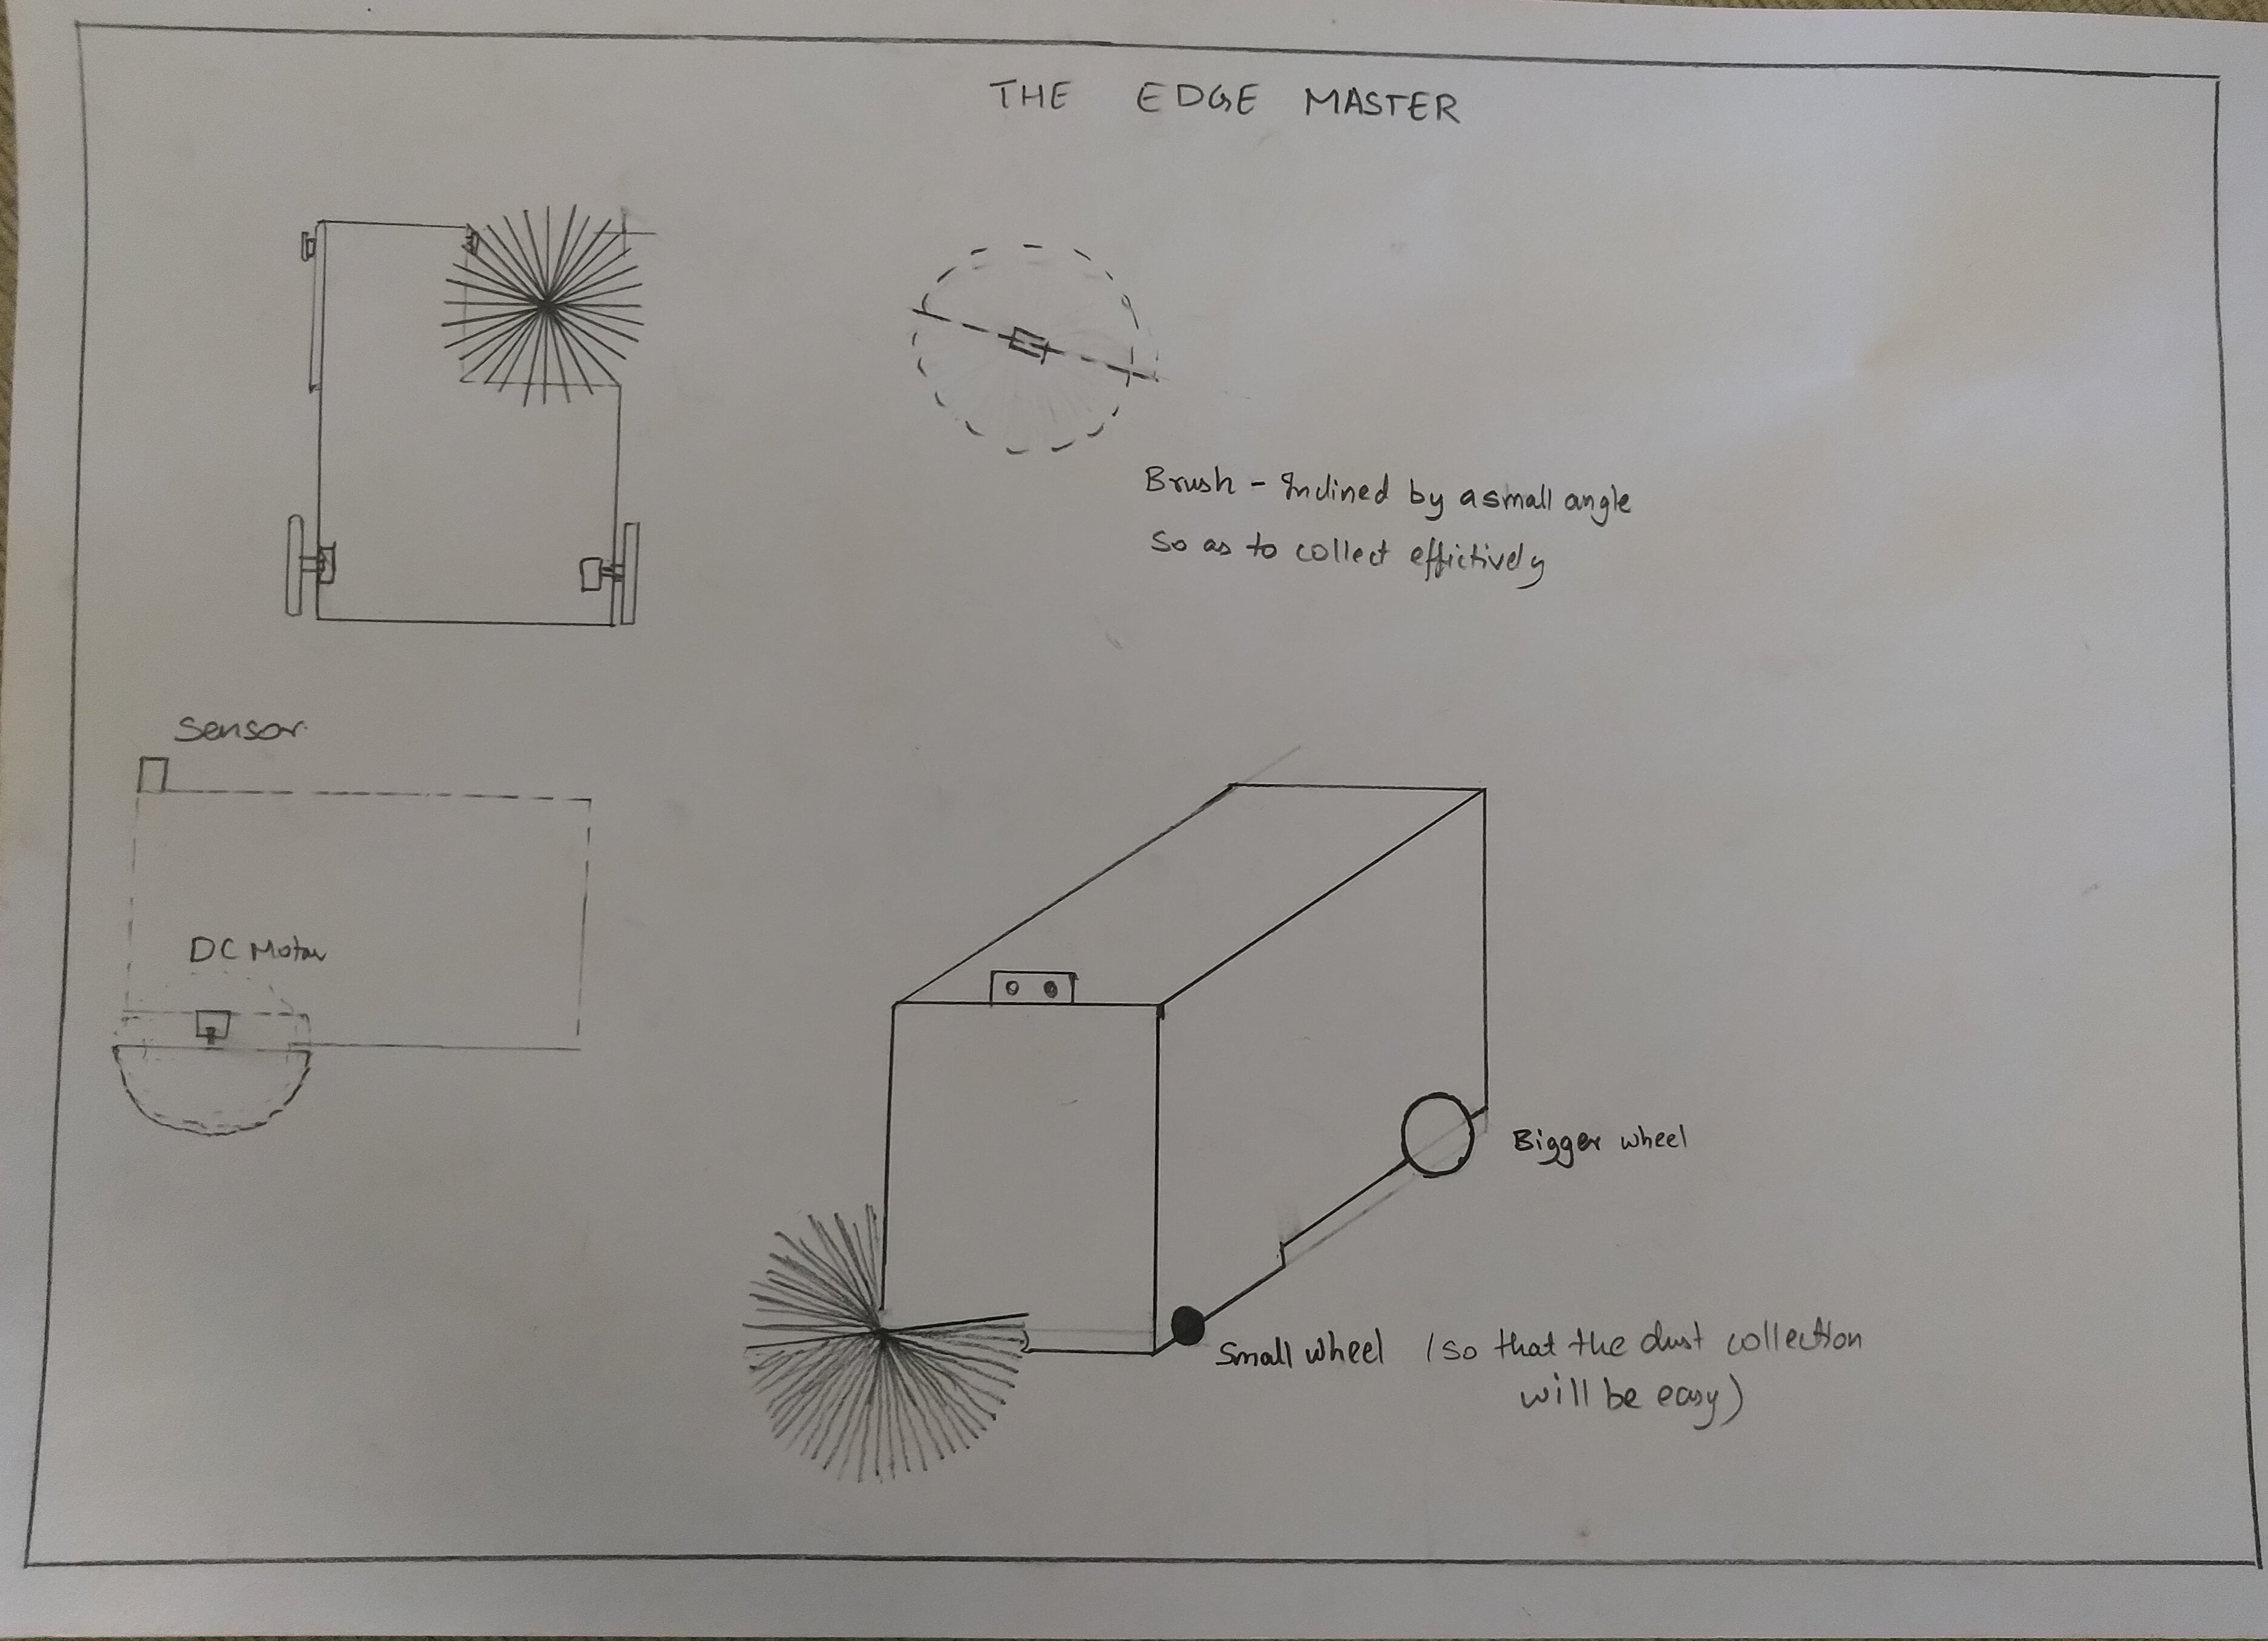 THE EDGE MASTER
Brush - Inclined by a small angle
So as to collect effictively
Sensor
DC Motor
Bigger wheel
Small wheel (so that the dust collection
will be easy)